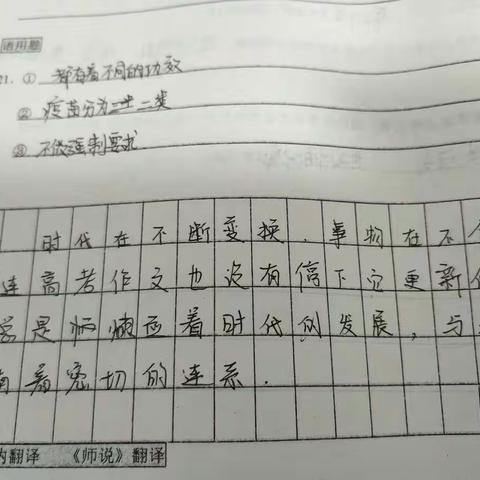 语用题
21. ① 都有着不同的功效
② 疫苗分为二类
③ 不做强制要求
时代在不断变换，事物在不
连高考作文也没有停下它更新
着时代的发展，与
着密切的连系.
内翻译 《师说》翻译